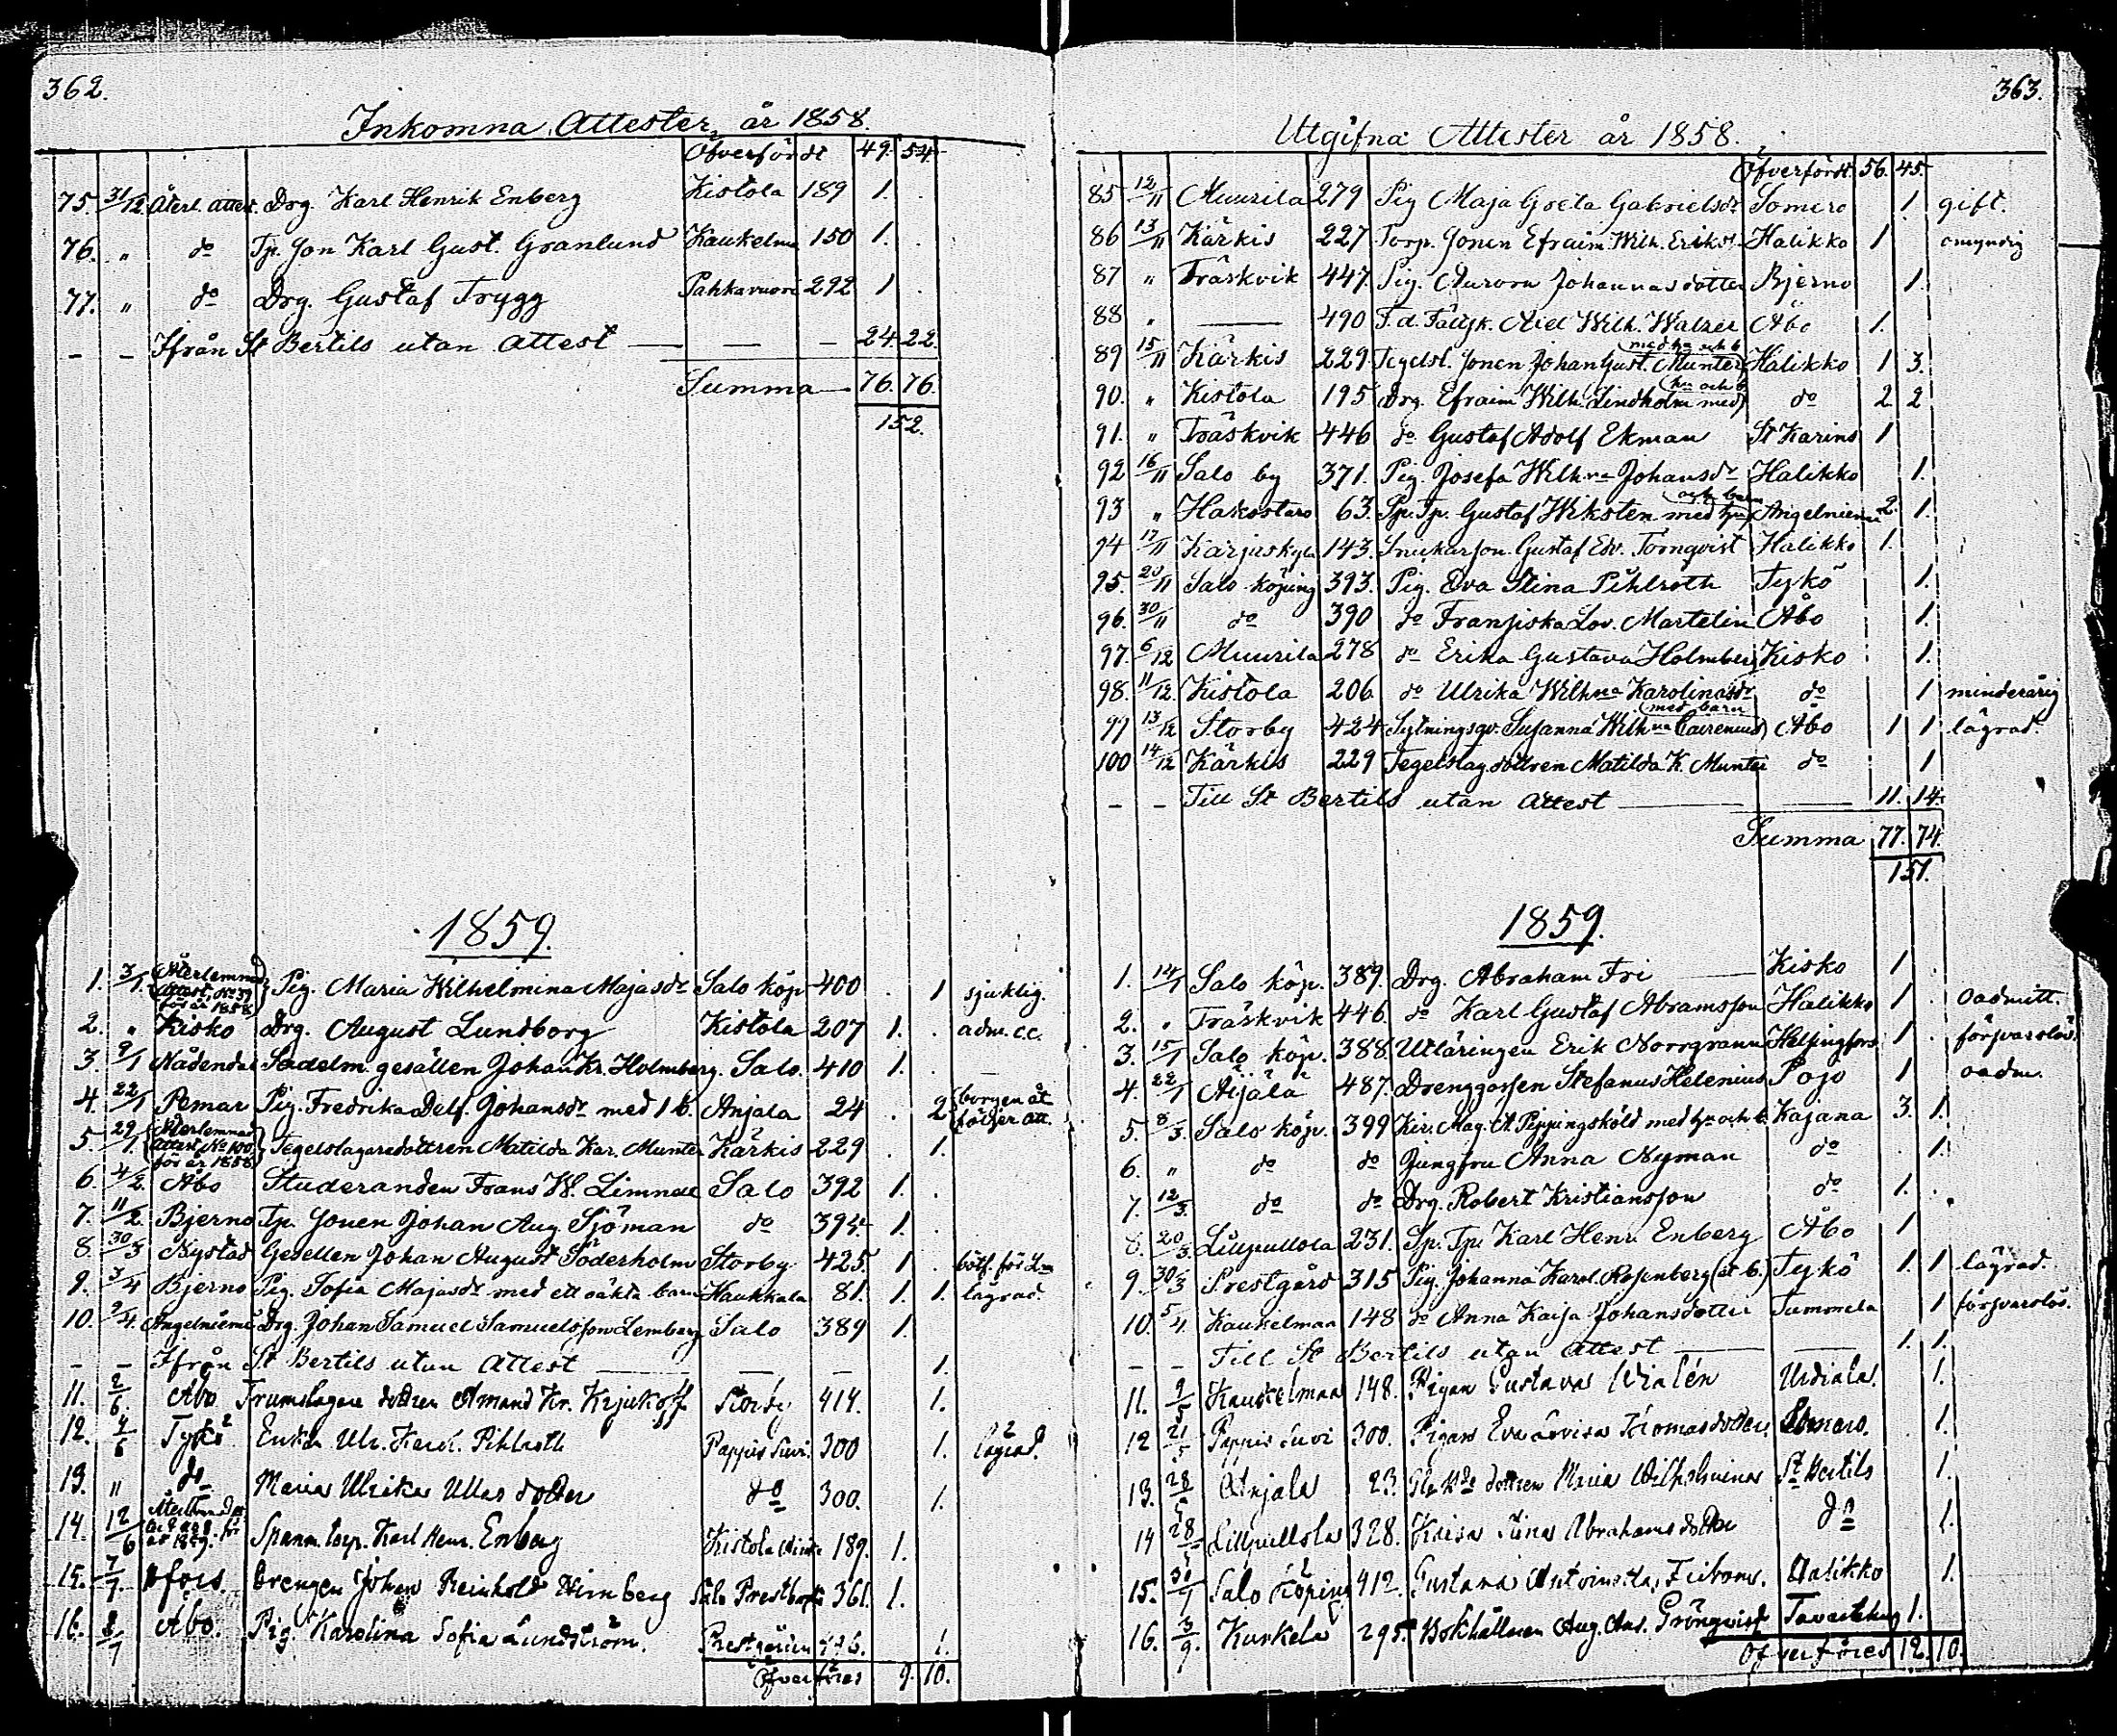 362.
Inkomna Attester år 1858.
Öfverfördt 49. 54.
75. 31/12 Återl. attest. Drg. Karl Henrik Enberg Kistola 189 1.
76. " do Tp. Son Karl Gust. Granlund Kaukelmaa 150 1.
77. " do Drg. Gustaf Trygg Pahkavuori 292 1
- - Ifrån St Bertils utan attest — — - 24 22.
Summa — 76. 76.
152.
1859.
1. 3/1. Återlemnad attest, No 39 för år 1858 Pig. Maria Wilhelmina Majasdr Salo köp 400 . 1 sjuklig.
2. " Kisko Drg. August Lundborg Kistola 207 1. . adm. c.c.
3. 9/1 Nådendal Sadelm. gesällen Johan Kr. Holmberg. Salo. 410 1.
4. 22/1 Pemar Pig. Fredrika Adelf. Johansdr med 1 b. Anjala 24 . 2 borgen åt
5. 29/1. Återlemnad attest No 100 för år 1858 Tegelslagaredottren Matilda Kar. Munter Kärkis 229 . 1.
6. 4/2. Åbo Studeranden Frans W. Limnell Salo 392 1. .
7. 11/2. Bjerno Tp. Sonen Johan Aug. Sjöman do 394 1.
8. 30/3 Nystad Gesellen Johan August Söderholm Storby 425. 1 .
9. 3/4 Bjerno Pig. Sofia Majasdr med ett oäkta barn Haukkala 81. 1. 1. lägrad.
10. 9/4. Angelniemi Drg. Johan Samuel Samuelsson Lemberg Salo 389 1.
- - Ifrån St Bertils utan attest — — - 1.
11. 2/6. Åbo Trumslagare dottren Amand Kr. Krjukoff Storby 414. 1.
12. 4/6 Tykö Enkan Ulr. Karol. Pihlroth Pappis Suvi. 300 1. lägrad.
13. " do Maria Ulrika Ullas dotter do 300. 1.
14. 12/6 Återlemnad för år 1859. Spanm. torp. Karl Henr. Enberg Kistola 189. 1.
15. 7/7. Hfors. Drengen Johan Reinhold Salo Prestbacka 361. 1.
16. 8/7 Åbo. Pig. Karolina Sofia Lundström. Prestgården 1.
Öfverföres 9. 10.
363.
Utgifna Attester år 1858.
Öfverfördt. 56. 45.
85 12/11 Muurila 279 Pig Maja Greta Gabrielsdr Somero 1. gift.
86 13/11 Kärkis 227 Torp. Sonen Efraim Wilh. Erikss. Halikko 1 omyndig
87 " Träskvik 447. Pig. Aurora Johannasdotter Bjerno 1.
88 " — 490 F.d. Fältsk. Axel Wilh. Walzer Åbo 1.
89 15/11 Kärkis 229 Tegelsl. Sonen Johan Gust. Munter med hu och b Halikko 1 3.
90. " Kistola 195 Drg. Efraim Wilh. Lindholm med hu och b do 2 2
91. " Träskvik 446 do Gustaf Adolf Ekman St Karins 1
92 16/11 Salo by 371. Pig. Josefa Wilhna Johansdr Halikko 1.
93 " Hakostaro 63. Sp. Tp. Gustaf Wiksten med hu och barn Angelniemi 2. 1.
94 17/11 Karjaskylä 143. Snickarson Gustaf Edv. Törnqvist Halikko 1.
95. 20/11 Salo köping 393. Pig. Eva Stina Pihlroth Tykö 1.
96. 30/11 do 390 do Fransiska Lov. Martelin Åbo 1.
97. 6/12 Muurila 278 do Erika Gustava Holmberg Kisko 1.
98. 11/12. Kistola 206 do Ulrika Wilhna Karolinasdr do 1 minderårig
99 13/12 Storby 424 Sytningsqv. Susanna Wilhna Cairenius med barn Åbo 1 1 lägrad.
100 14/12 Kärkis 229 Tegelslag.dottren Matilda K. Munter do 1
- - Till St Bertils utan attest — — 11. 14.
Summa 77. 74.
151.
1859.
1. 14/1 Salo köp. 389. Drg. Abraham Fri — Kisko 1 .
2. " Träskvik 446. do Karl Gustaf Abramsson Halikko 1 . oadmitt.
3. 15/1 Salo köp. 388. Utläringen Erik Norrgrann Helsingfors 1 . försvarslös.
4. 22/1 Äijälä 487. Drenggossen Stefanus Helenius Pojo 1 oadm.
5. 8/3. Salo köp. 399 Kir. Mag. A. Pippingsköld med hu och b. Kajana 3. 1.
6. " do do Jungfru Anna Nyman do . 1.
7. 12/3. do do Drg. Robert Kristiansson do 1. .
8. 20/3. Lillpullola 231. Sp. Tp. Karl Henr. Enberg Åbo 1
9. 30/3 Prestgård 315 Pig. Johanna Karol. Rosenberg (et b.) Tykö 1. 1 lägrad.
10. 5/4. Kaukelmaa 148 do Anna Kaisa Johansdotter Tammela 1 försvarslös.
- - Till St Bertils utan attest — — 1. 1.
11. 9/5 Kaukelmaa 148. Pigan Gustava Wialén Urdiala. 1.
12 21/5 Pappis Suvi 300. Pigan Eva Lovisa Thomasdotter Somero. 1.
13. 28/5 Anjala 23. dottren Maria Wilhelmina St Bertils 1.
14 28/5 Lillpullola 328. Kaisa Stina Abrahamsdotter do 1.
15. 30/7 Salo Köping 412. Gustava Antoinetta Halikko 1.
16. 3/9. Kurkela 295. Bokhållaren Aug. And. Grönqvist Tavastehus 1.
Öfverföres 12. 10.